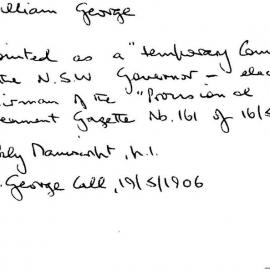 illiam George
ointed as a "temporary Com
the N.S.W Governor - elec
irman of the "Provision al
ernment Gazette No. 161 of 16/5
ly Manuscript, n.1.
. George Call, 19/5/1906